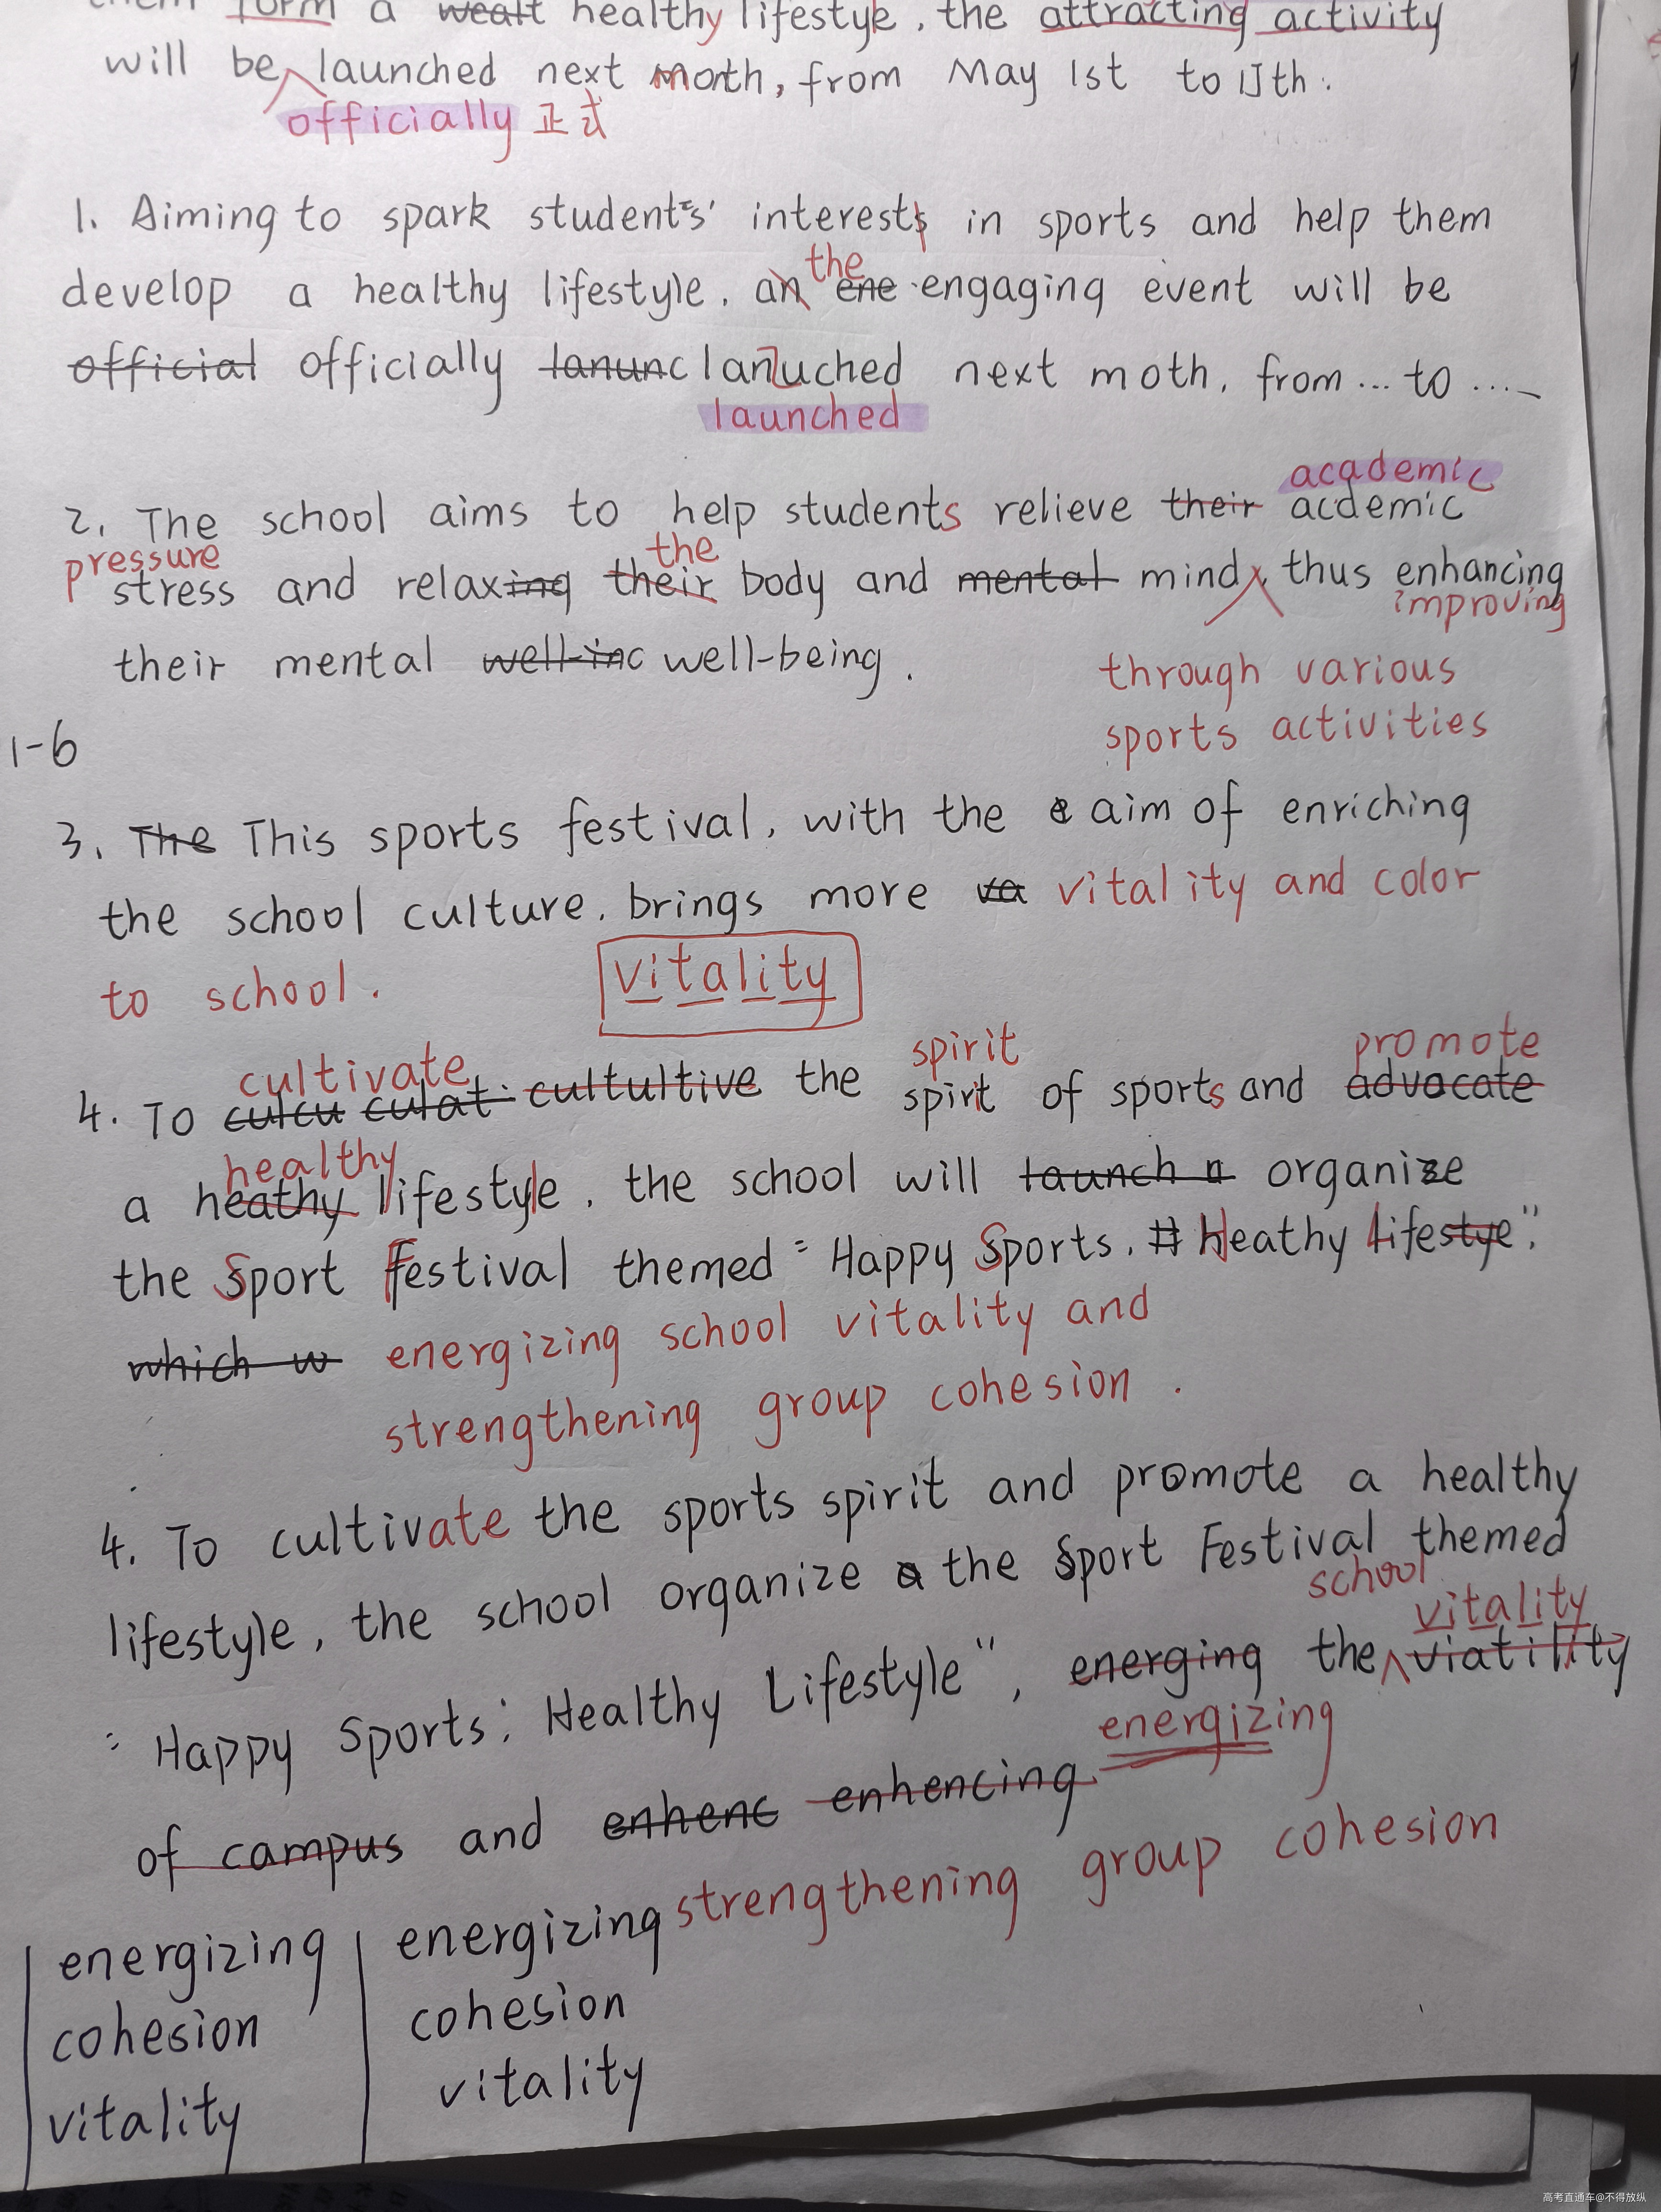 them form a wealt healthy lifestyle, the attracting activity
will be launched next month, from May 1st to th.
officially 正式
1. Aiming to spark students' interests in sports and help them
the
develop a healthy lifestyle, an ene engaging event will be
official officially lanunc lanuched next moth, from ... to ...
launched
academic
2. The school aims to help students relieve their acdemic
pressure the
stress and relaxing their body and mental mind, thus enhancing
improving
their mental well-inc well-being.
through various
sports activities
1-6
3. The This sports festival, with the aim of enriching
the school culture, brings more va vitality and color
to school.
vitality
cultivate spirit promote
4. To culcu culat cultultive the spirit of sports and advocate
healthy
a heathy lifestyle, the school will launch a organize
the Sport Festival themed "Happy Sports, H Heathy Lifestye".
which w energizing school vitality and
strengthening group cohesion.
4. To cultivate the sports spirit and promote a healthy
lifestyle, the school organize a the Sport Festival themed
school vitality
"Happy Sports; Healthy Lifestyle", energing the viatility
energizing
of campus and enhenc enhencing
strengthening group cohesion
energizing energizing
cohesion cohesion
vitality vitality
高考直通车@不得放纵